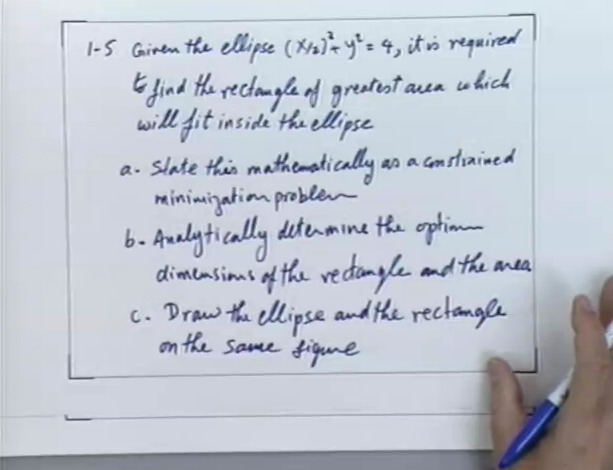 1-5 Given the ellipse (x/2)² + y² = 4, it is required
to find the rectangle of greatest area which
will fit inside the ellipse
a. State this mathematically as a constrained
minimization problem
b. Analytically determine the optimum
dimensions of the rectangle and the area
c. Draw the ellipse and the rectangle
on the same figure